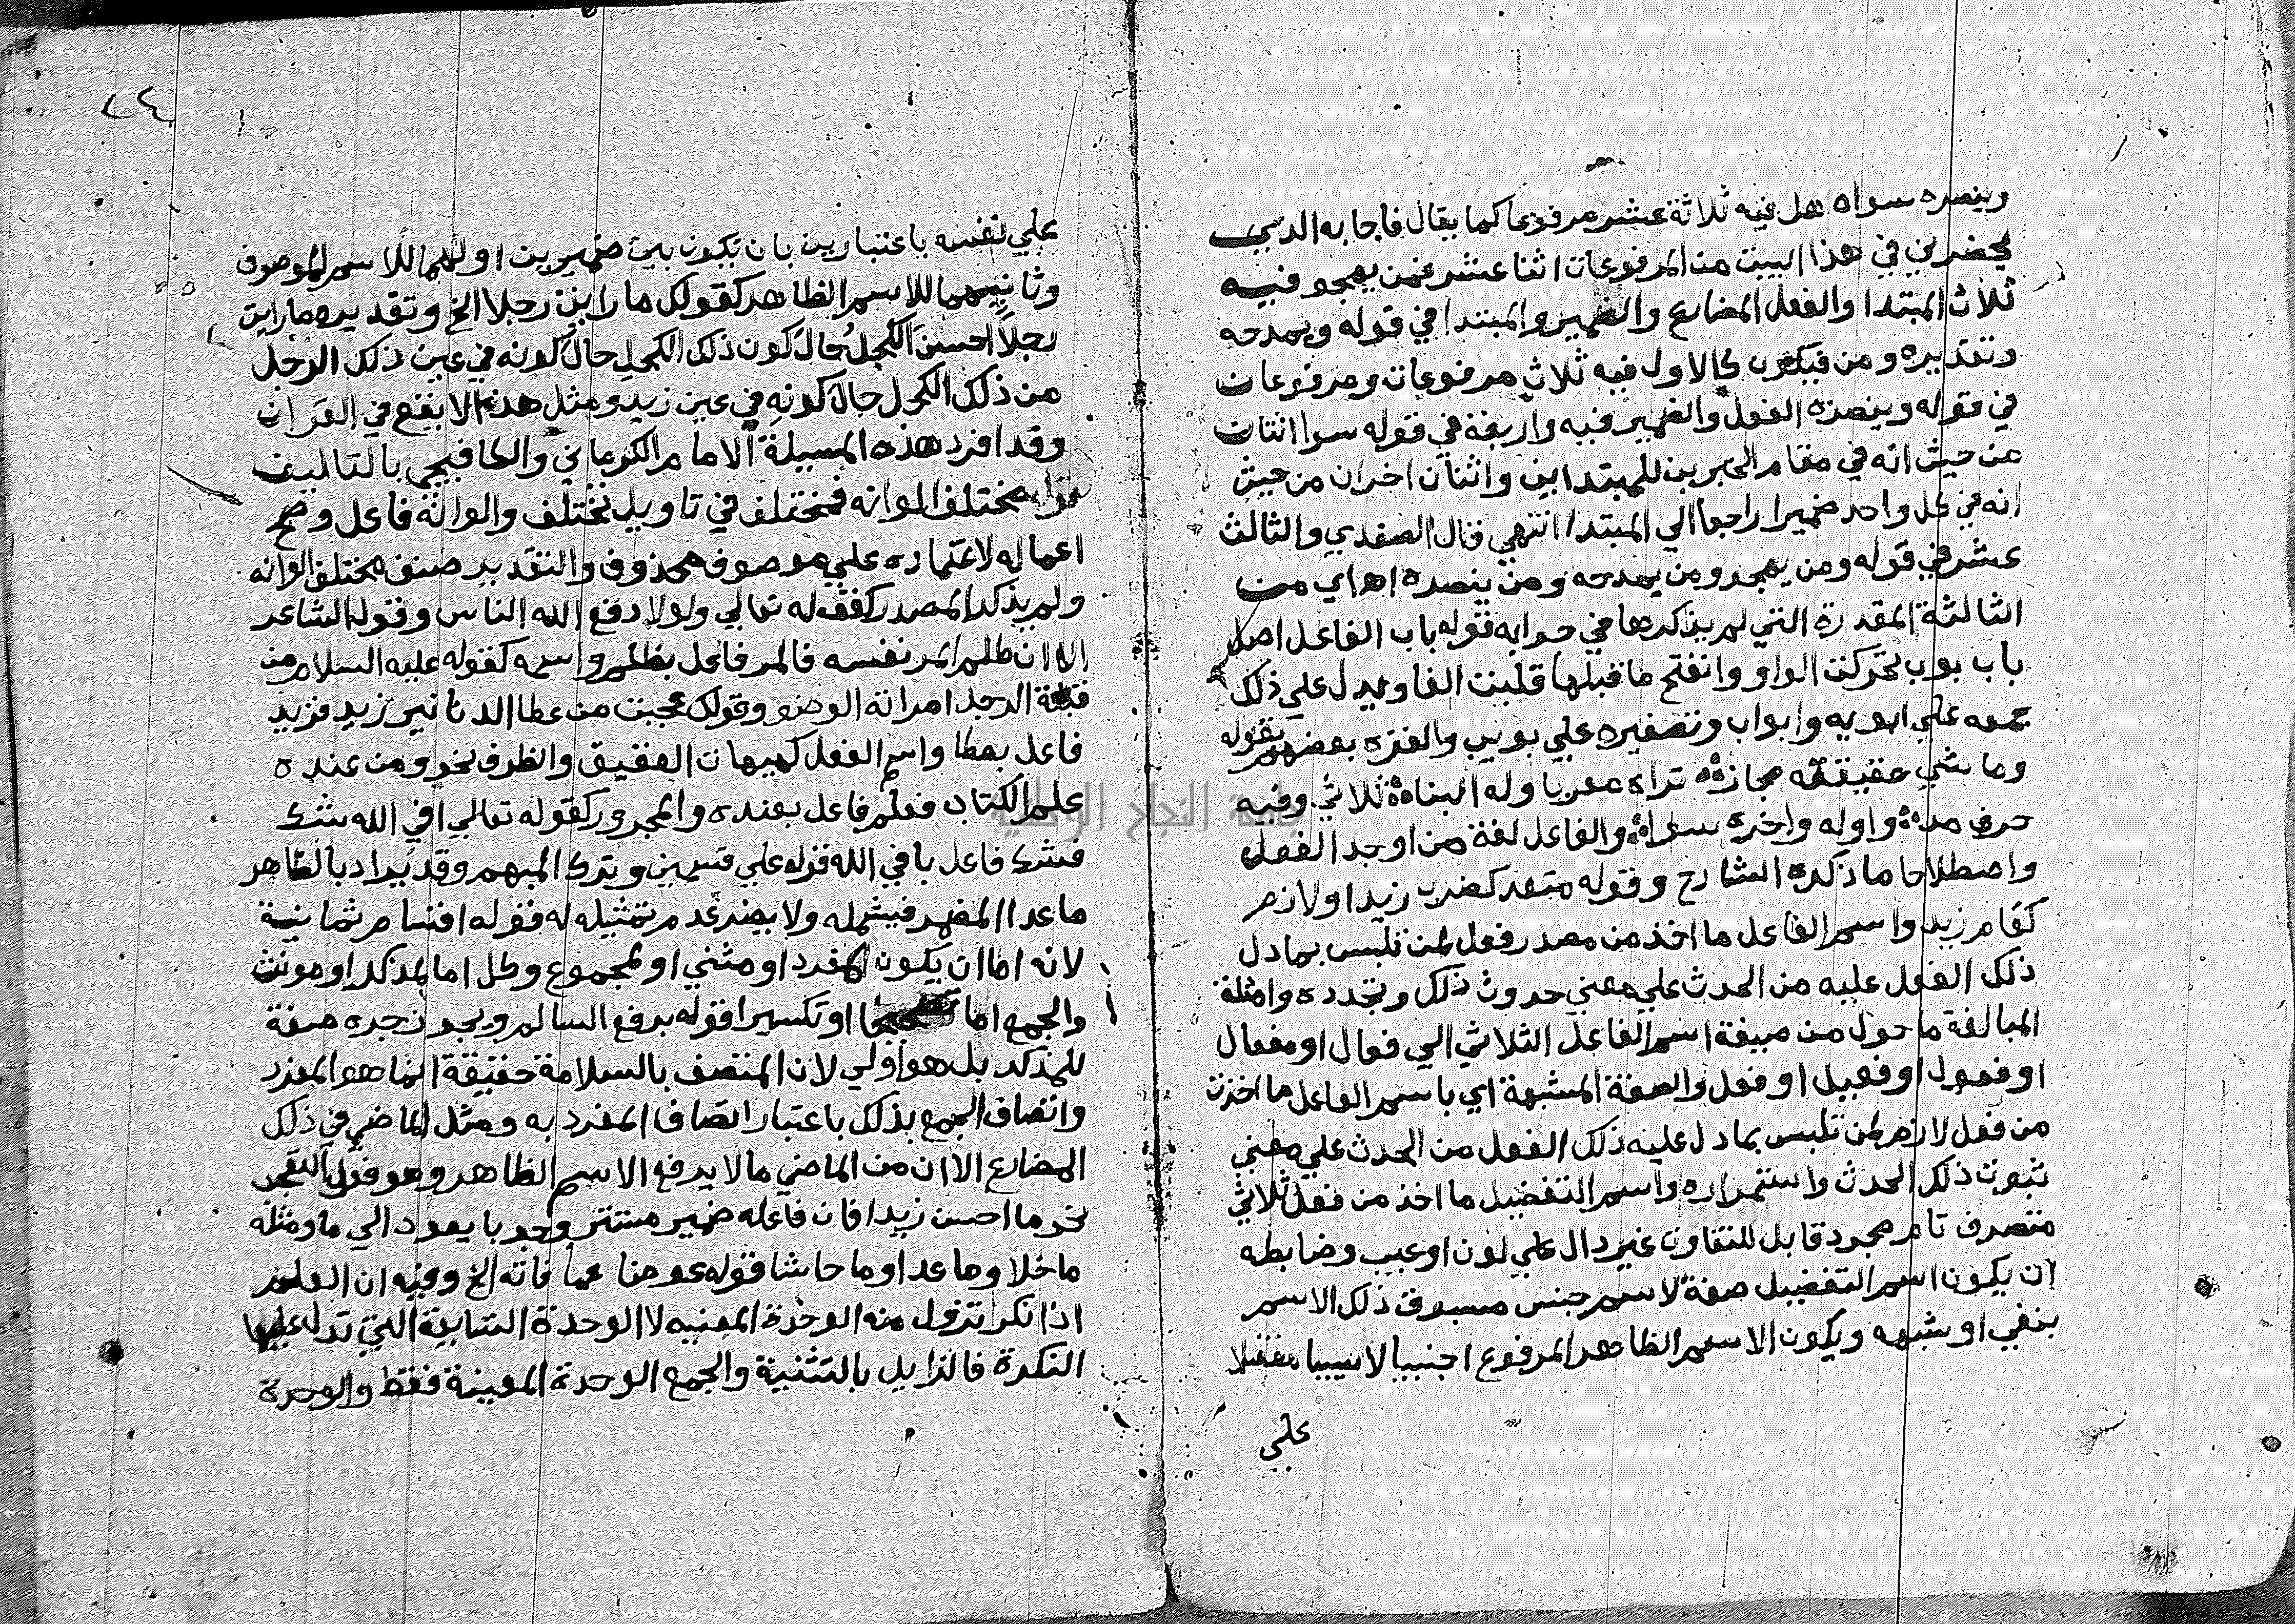 وينصره سواه هل فيه ثلاثة عشر مرفوعا كما يقال فاجابه الذي
يحضرني في هذا البيت من المرفوعات اثنا عشر فمن يهجو فيه
ثلاث المبتدا والفعل المضارع والضمير والمبتدا في قوله ويمدحه
وتقديره ومن فيكون كالاول فيه ثلاث مرفوعات ومرفوعات
في قوله وينصره الفعل والضمير فيه واربعة في قوله سوا اثنتان
من حيث انه في مقام الخبرين للمبتداين واثنان اخران من حيث
انه في كل واحد ضميرا راجعا الي المبتدا انتهي قال الصفدي والثالث
عشر في قوله ومن يهجو ومن يمدحه ومن ينصره اه اي من
الثالثة المقدرة التي لم يذكرها في جوابه قوله باب الفاعل اصل
باب بوب تحركت الواو وانفتح ما قبلها قلبت الفا ويدل علي ذلك
جمعه علي ابويه وابواب وتصغيره علي بويب والغزه بعضهم بقوله
وما شي حقيقته مجازة تراه معربا وله البناءة ثلاثي وفيه
حرف مدة واوله واخره سواة والفاعل لغة من اوجد الفعل
واصطلاحا ما ذكره الشارح وقوله متعد كضرب زيد اولازم
كقام زيد واسم الفاعل ما اخذ من مصدر فعل لمن تلبس بما دل
ذلك الفعل عليه من الحدث علي معني حدوث ذلك وتجدده وامثلة
المبالغة ما حول من صيغة اسم الفاعل الثلاثي الي فعال او مفعال
او فعول او فعيل او فعل والصفة المشبهة اي باسم الفاعل ما اخذت
من فعل لازم لمن تلبس بما دل عليه ذلك الفعل من الحدث علي معني
ثبوت ذلك الحدث واستمراره واسم التفضيل ما اخذ من فعل ثلاثي
متصرف تام مجرد قابل للتفاوت غير دال علي لون او عيب وضابطه
ان يكون اسم التفضيل صفة لاسم جنس مسبوق ذلك الاسم
بنفي او شبهه ويكون الاسم الظاهر المرفوع اجنبيا لا سببيا مفضلا
علي
٢٤
علي نفسه باعتبارين بان يكون بين ضميرين اولهما للاسم الموصوف
وثانيهما للاسم الظاهر كقولك ما رايت رجلا الخ وتقديره ما رايت
رجلا احسن الكحل حال كون ذلك الكحل حال كونه في عين ذلك الرجل
من ذلك الكحل حال كونه في عين زيد ومثل هذا لا يقع في القران
وقد افرد هذه المسيلة الامام الكرماني والكافيجي بالتاليف
قوله مختلف الوانه فمختلف في تاويل يختلف والوانه فاعل وصح
اعماله لاعتماده علي موصوف محذوف والتقدير صنف مختلف الوانه
ولم يذكر المصدر كقوله تعالي ولولا دفع الله الناس وقوله الشاعر
الا ان ظلم المر نفسه فالمر فاعل بظلم واسمه كقوله عليه السلام من
قبلة الرجل امراته الوضو وقولك عجبت من عطا الدنانير زيد فزيد
فاعل بعطا واسم الفعل كهيهات العقيق والظرف نحو ومن عنده
علم الكتاب فعلم فاعل بعنده والمجرور كقوله تعالي افي الله شك
فشك فاعل بافي الله قوله علي قسمين وترك المبهم وقد يراد بالظاهر
ما عدا المضمر فيشمله ولا يضر عدم تمثيله له قوله اقسام ثمانية
لانه اما ان يكون لمفرد او مثني او لمجموع وكل اما لمذكر او مونث
والجمع اما تصحيحا او تكسيرا قوله برفع السالم ويجوز جره صفة
للمذكر بل هو اولي لان المتصف بالسلامة حقيقة انما هو المفرد
واتصاف الجمع بذلك باعتبار اتصاف المفرد به ومثل الماضي في ذلك
المضارع الا ان من الماضي ما لا يرفع الاسم الظاهر وهو فعل التعجب
نحو ما احسن زيدا فان فاعله ضمير مستتر وجوبا يعود الي ما ومثله
ما خلا وما عدا وما حاشا قوله عوضا عما فاته الخ وفيه ان العلم
اذا نكر تزول منه الوحدة المعنيه لا الوحدة الشايعة التي تدل عليها
النكرة فالزايل بالتثنية والجمع الوحدة المعينة فقط والوحدة